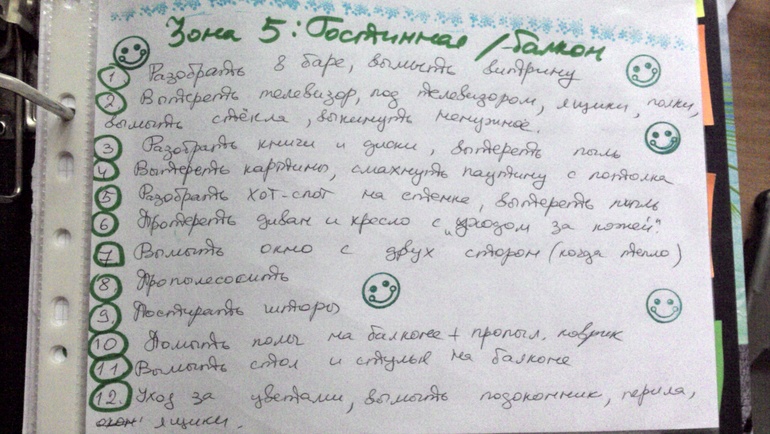 Зона 5: Гостинная / балкон
1 Разобрать в баре, вымыть витрину
2 Вытереть телевизор, под телевизором, ящики, полки,
вымыть стёкла, выкинуть ненужное.
3 Разобрать книги и диски, вытереть пыль
4 Вытереть картины, смахнуть паутину с потолка
5 Разобрать хот-спот на стенке, вытереть пыль
6 Протереть диван и кресло с "уходом за кожей".
7 Вымыть окно с двух сторон (когда тепло)
8. Пропылесосить
9 Постирать шторы
10 Помыть полы на балконе + пропыл. коврик
11 Вымыть стол и стулья на балконе
12. Уход за цветами, вымыть подоконник, перила,
ящики.